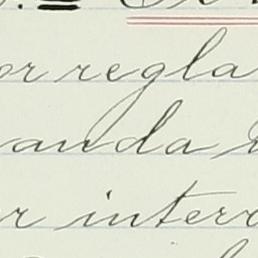 or regla
anda
r inter